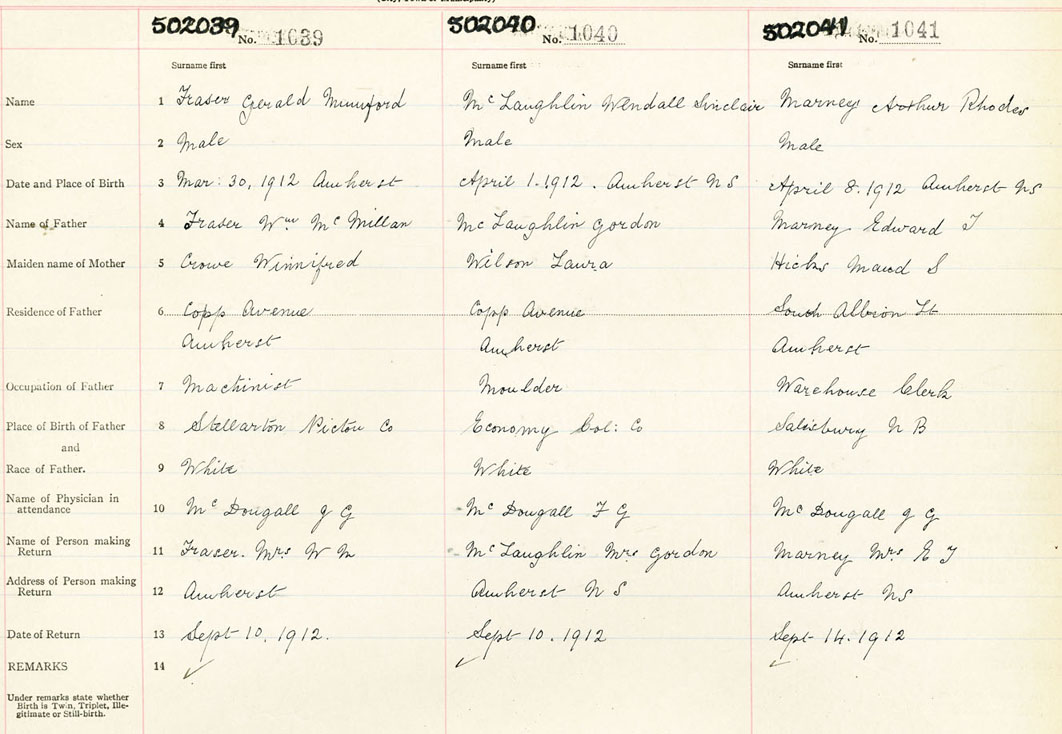 502039 No. 1039 502040 No. 1040 502041 No. 1041
Surname first Surname first Surname first
Name 1 Fraser Gerald Mumford Mc Laughlin Wendall Sinclair Marney Arthur Rhodes
Sex 2 Male Male Male
Date and Place of Birth 3 Mar: 30, 1912 Amherst April 1. 1912. Amherst N S April 8. 1912 Amherst NS
Name of Father 4 Fraser Wm Mc Millan Mc Laughlin Gordon Marney Edward T
Maiden name of Mother 5 Crowe Winnifred Wilson Laura Hicks Maud S
Residence of Father 6 Copp Avenue Copp Avenue South Albion St
Amherst Amherst Amherst
Occupation of Father 7 Machinist Moulder Warehouse Clerk
Place of Birth of Father 8 Stellarton Pictou Co Economy Col: Co Salisbury N B
and
Race of Father. 9 White White White
Name of Physician in
attendance 10 Mc Dougall J G Mc Dougall F G Mc Dougall J G
Name of Person making
Return 11 Fraser. Mrs W M Mc Laughlin Mrs Gordon Marney Mrs E T
Address of Person making
Return 12 Amherst Amherst N S Amherst NS
Date of Return 13 Sept 10. 1912. Sept 10. 1912 Sept 14. 1912
REMARKS 14 ✓ ✓ ✓
Under remarks state whether
Birth is Twin, Triplet, Ille-
gitimate or Still-birth.